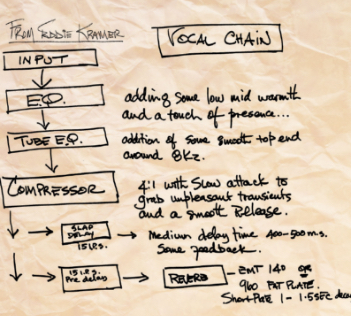 FROM EDDIE KRAMER
VOCAL CHAIN
INPUT
E.Q.
adding some low mid warmth
and a touch of presence...
TUBE E.Q.
addition of some smooth top end
around 8Kz.
COMPRESSOR
4:1 with slow attack to
grab unpleasant transients
and a smooth release.
SLAP
DELAY
15 I.P.S.
Medium delay time 400-500 m.s.
Some feedback.
15 I.P.S.
Pre delay
REVERB
- EMT 140 OR
960 FAT PLATE.
Short Pre 1 - 1.5 SEC decay